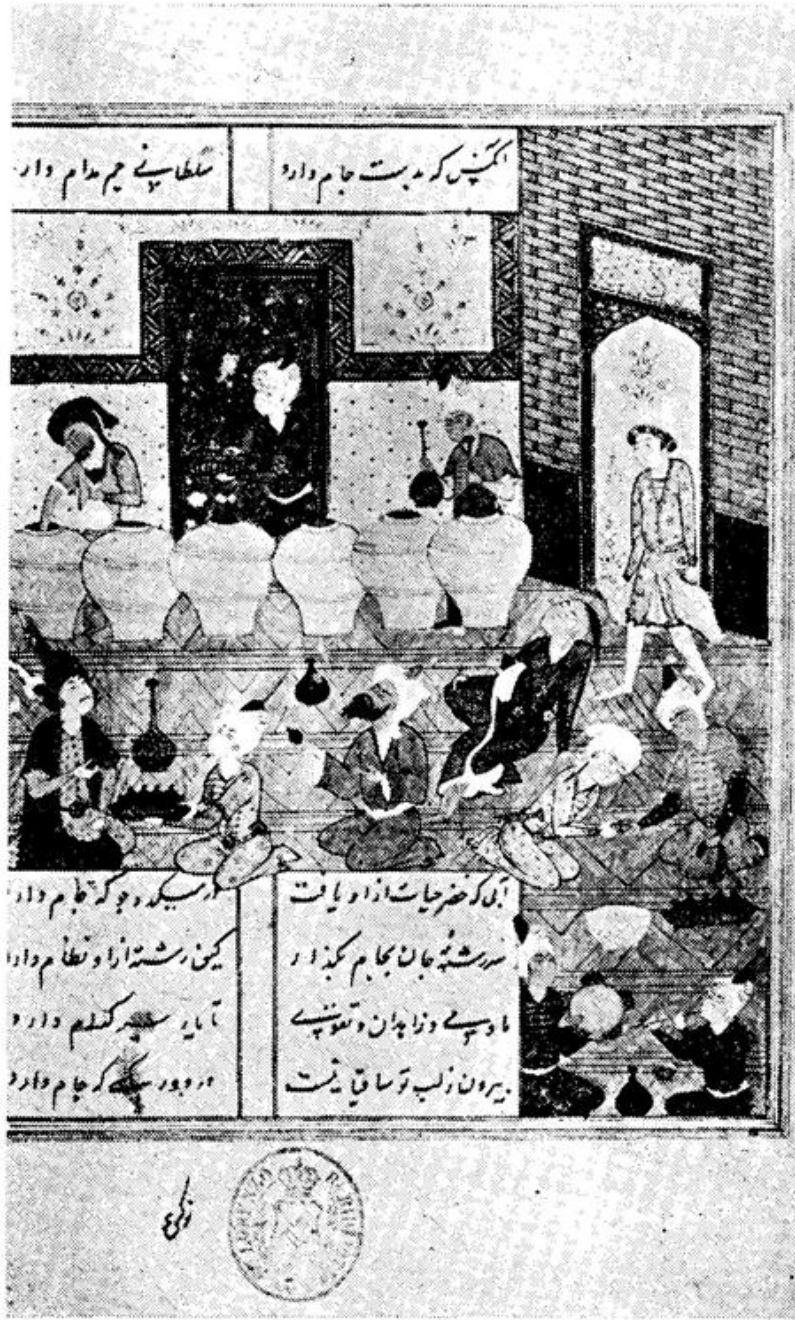 آنکس که بدست جام دارد سلطانی جم مدام دارد
آبی که خضر حیات ازو یافت در میکده جو که جام دارد
سررشته جان بجام بگذار کین رشته ازو نظام دارد
ما و می و زاهدان و تقوی تا یار سر کدام دارد
بیرون ز لب تو ساقیا نیست در دور کسی که جام دارد